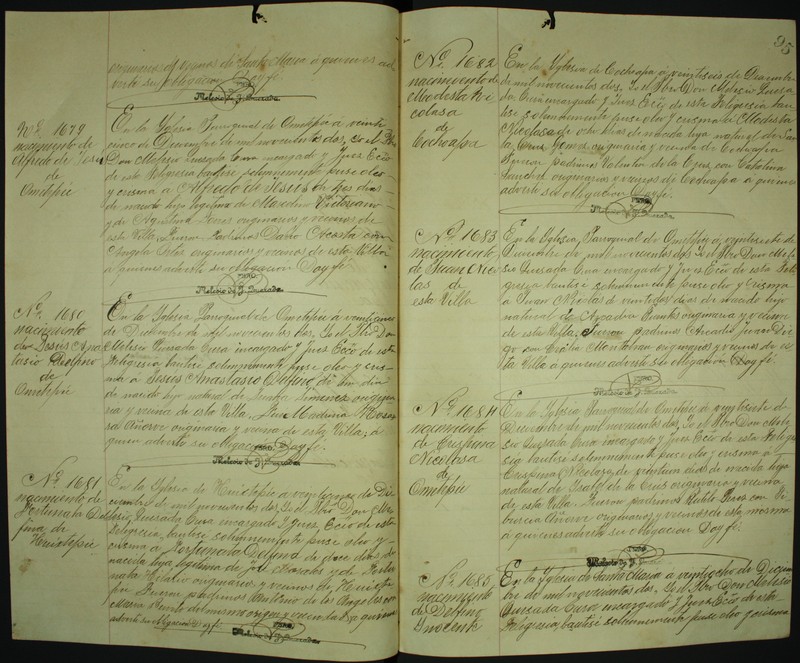 originarios y vecinos de Santa Maria á quienes ad
vertí su obligacion. Doy fé.
PBRO.
Melesio de J. Quesada
Nº 1679
nacimiento de
Alfredo de Jesus
de
Ometepec
En la Iglesia Parroquial de Ometepec á veinti
cinco de Diciembre de mil novecientos dos, Yo el Pbro
Don Melesio Quesada Cura encargado y Juez Ecco
de esta Feligresia bautisé solemnemente puse oleo
y crisma á Alfredo de Jesus de tres dias
de nacido hijo legitimo de Marcelino Victoriano
y de Agustina originarios y vecinos de
esta Villa. Fueron Padrinos Dario Acosta con
Angela originarios y vecinos de esta Villa
á quienes advertí su obligacion Doy fé.
PBRO.
Melesio de J. Quesada
Nº 1680
nacimiento
de Jesus Anas
tasio Delfino
de
Ometepec
En la Iglesia Parroquial de Ometepec á veinticinco
de Diciembre de mil novecientos dos, Yo el Pbro Don
Melesio Quesada Cura encargado y Juez Ecco de esta
Feligresia bautisé solemnemente puse oleo y cris
ma á Jesus Anastasio Delfino de un dia
de nacido hijo natural de Jimenez origina
ria y vecina de esta Villa. Fue Madrina
Añorve originaria y vecina de esta Villa, á
quien advertí su obligacion Doy fé.
PBRO.
Melesio de J. Quesada
Nº 1681
nacimiento de
Fortunata Del
fina de
Huistepec
En la Iglesia de Huistepec á veinticinco de Dici
embre de mil novecientos dos, Yo el Pbro Don Me
lesio Quesada Cura encargado y Juez Ecco de esta
Feligresia, bautisé solemnemente puse oleo y
crisma á Fortunata Delfina de doce dias de
nacida hija legitima de José Morales y de Fortu
nata originarios y vecinos de Huiste
pec. Fueron padrinos Antonio de los Angeles con
Maria del mismo origen y vecindad á quienes
advertí su obligacion Doy fé.
PBRO.
Melesio de J. Quesada
95
Nº 1682
nacimiento de
Modesta Ni
colasa
de
Cochoapa
En la Iglesia de Cochoapa á veintiseis de Diciembre
de mil novecientos dos, Yo el Pbro. Don Melesio Quesa
da Cura encargado y Juez Ecco de esta Feligresia bau
tisé solemnemente puse oleo y crisma á Modesta
Nicolasa de ocho dias de nacida hija natural de
Cruz Gomez originaria y vecina de Cochoapa
Fueron padrinos de la Cruz con Catalina
Sanchez originarios y vecinos de Cochoapa á quienes
advertí su obligacion Doy fé.
PBRO.
Melesio de J. Quesada
Nº 1683
nacimiento
de Juan Nico
las de
esta Villa
En la Iglesia Parroquial de Ometepec á veintisiete de
Diciembre de mil novecientos dos, Yo el Pbro Don Mele
sio Quesada Cura encargado y Juez Ecco de esta Feli
gresia bautisé solemnemente puse oleo y crisma
á Juan Nicolas de veintidos dias de nacido hijo
natural de Arcadia originaria y vecina
de esta Villa. Fueron padrinos Arcadio Juan Die
go con originarios y vecinos de es
ta Villa á quienes advertí su obligacion Doy fé.
PBRO.
Melesio de J. Quesada
Nº 1684
nacimiento
de Crispina
Nicolasa
de
Ometepec
En la Iglesia Parroquial de Ometepec á veintisiete de
Diciembre de mil novecientos dos, Yo el Pbro Don Mele
sio Quesada Cura encargado y Juez Ecco de esta Feligre
sia bautisé solemnemente puse oleo y crisma á
Crispina Nicolasa de veintiun dias de nacida hija
natural de Isabel de la Cruz originaria y vecina
de esta Villa. Fueron padrinos con Ti
burcia Añorve originarios y vecinos de esta misma
á quienes advertí su obligacion Doy fé.
PBRO.
Melesio de J.
Nº 1685
nacimiento
de Delfino
Inocente
En la Iglesia de Santa Maria á veintiocho de Diciem
bre de mil novecientos dos, Yo el Pbro Don Melesio
Quesada Cura encargado y Juez Ecco de esta
Feligresia, bautisé solemnemente puse oleo y crisma